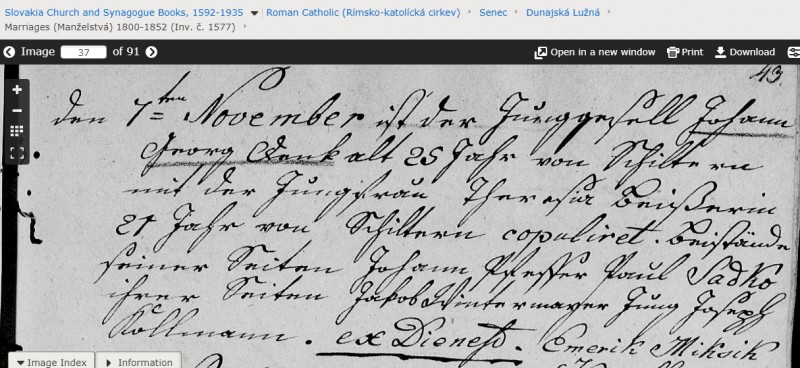 Slovakia Church and Synagogue Books, 1592-1935 Roman Catholic (Rímsko-katolícká cirkev) Senec Dunajská Lužná
Marriages (Manželstvá) 1800-1852 (Inv. č. 1577)
Image 37 of 91 Open in a new window Print Download
43.
den 7ten November ist der Junggesell Johann
Georg Denk alt 25 Jahr von Schiltern
mit der Jungfrau Theresia Beißerin
21 Jahr von Schiltern copuliret. Beistände
seiner Seiten Johann Pfeffer Paul Sadko
ihrer Seiten Jakob Wintermayer Jung Joseph
Kollmann. ex Dienest. Emerik Miksik
Image Index Information